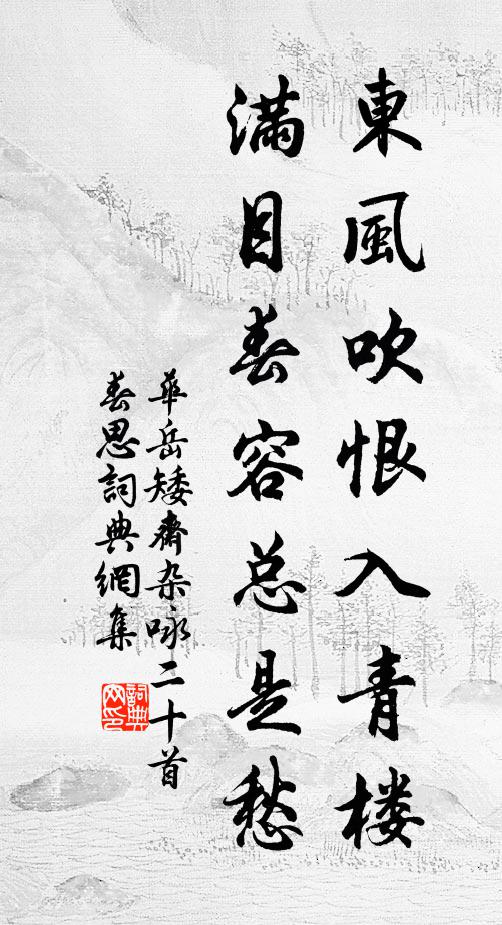 東風吹恨入青楼
满目春容总是愁
華岳矮齋杂咏二十首
春思詞典網集
詞典网印